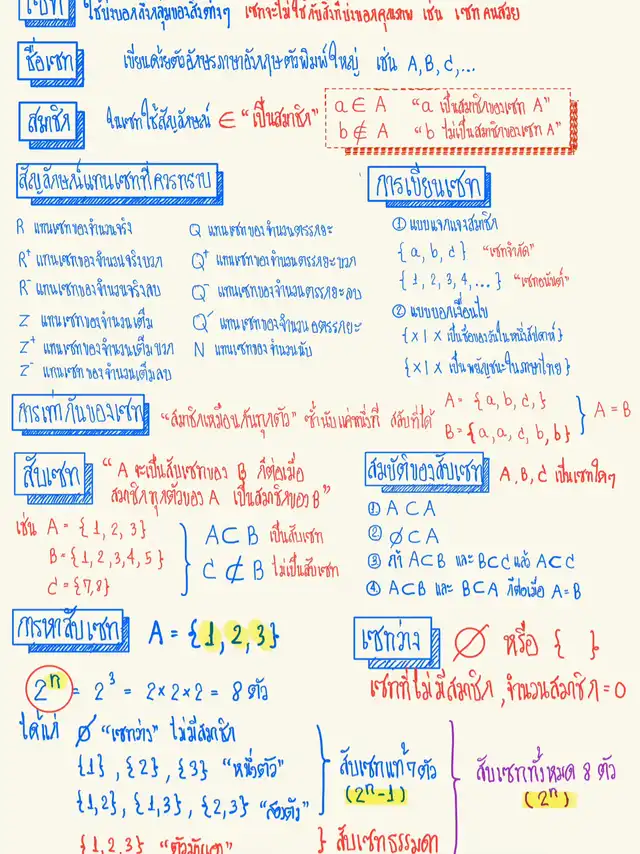 เซต ใช้บ่งบอกถึงกลุ่มของสิ่งต่างๆ เซตจะไม่ใช้กับสิ่งที่บ่งบอกคุณภาพ เช่น เซตคนสวย
ชื่อเซต เขียนด้วยตัวอักษรภาษาอังกฤษตัวพิมพ์ใหญ่ เช่น A, B, C, ...
สมาชิก ในเซตใช้สัญลักษณ์ ∈ "เป็นสมาชิก"
a ∈ A "a เป็นสมาชิกของเซต A"
b ∉ A "b ไม่เป็นสมาชิกของเซต A"
สัญลักษณ์แทนเซตที่ควรทราบ
R แทนเซตของจำนวนจริง
R⁺ แทนเซตของจำนวนจริงบวก
R⁻ แทนเซตของจำนวนจริงลบ
Z แทนเซตของจำนวนเต็ม
Z⁺ แทนเซตของจำนวนเต็มบวก
Z⁻ แทนเซตของจำนวนเต็มลบ
Q แทนเซตของจำนวนตรรกยะ
Q⁺ แทนเซตของจำนวนตรรกยะบวก
Q⁻ แทนเซตของจำนวนตรรกยะลบ
Q′ แทนเซตของจำนวนอตรรกยะ
N แทนเซตของจำนวนนับ
การเขียนเซต
① แบบแจกแจงสมาชิก
{ a, b, c } "เซตจำกัด"
{ 1, 2, 3, 4, ... } "เซตอนันต์"
② แบบบอกเงื่อนไข
{ x | x เป็นชื่อของวันในหนึ่งสัปดาห์ }
{ x | x เป็นพยัญชนะในภาษาไทย }
การเท่ากันของเซต "สมาชิกเหมือนกันทุกตัว" ซ้ำนับแค่หนึ่งที่ สลับที่ได้
A = { a, b, c, }
B = { a, a, c, b, b }
A = B
สับเซต "A จะเป็นสับเซตของ B ก็ต่อเมื่อ
สมาชิกทุกตัวของ A เป็นสมาชิกของ B"
เช่น A = { 1, 2, 3 }
B = { 1, 2, 3, 4, 5 }
C = { 7, 8 }
A ⊂ B เป็นสับเซต
C ⊄ B ไม่เป็นสับเซต
สมบัติของสับเซต A, B, C เป็นเซตใดๆ
① A ⊂ A
② ∅ ⊂ A
③ ถ้า A⊂B และ B⊂C แล้ว A⊂C
④ A⊂B และ B⊂A ก็ต่อเมื่อ A=B
การหาสับเซต A = { 1, 2, 3 }
2ⁿ = 2³ = 2×2×2 = 8 ตัว
เซตว่าง ∅ หรือ { }
เซตที่ไม่มีสมาชิก, จำนวนสมาชิก = 0
ได้แก่ ∅ "เซตว่าง" ไม่มีสมาชิก
{1} , {2} , {3} "หนึ่งตัว"
{1,2} , {1,3} , {2,3} "สองตัว"
สับเซตแท้ 7 ตัว
(2ⁿ-1)
สับเซตทั้งหมด 8 ตัว
(2ⁿ)
{1,2,3}
} สับเซตธรรมดา